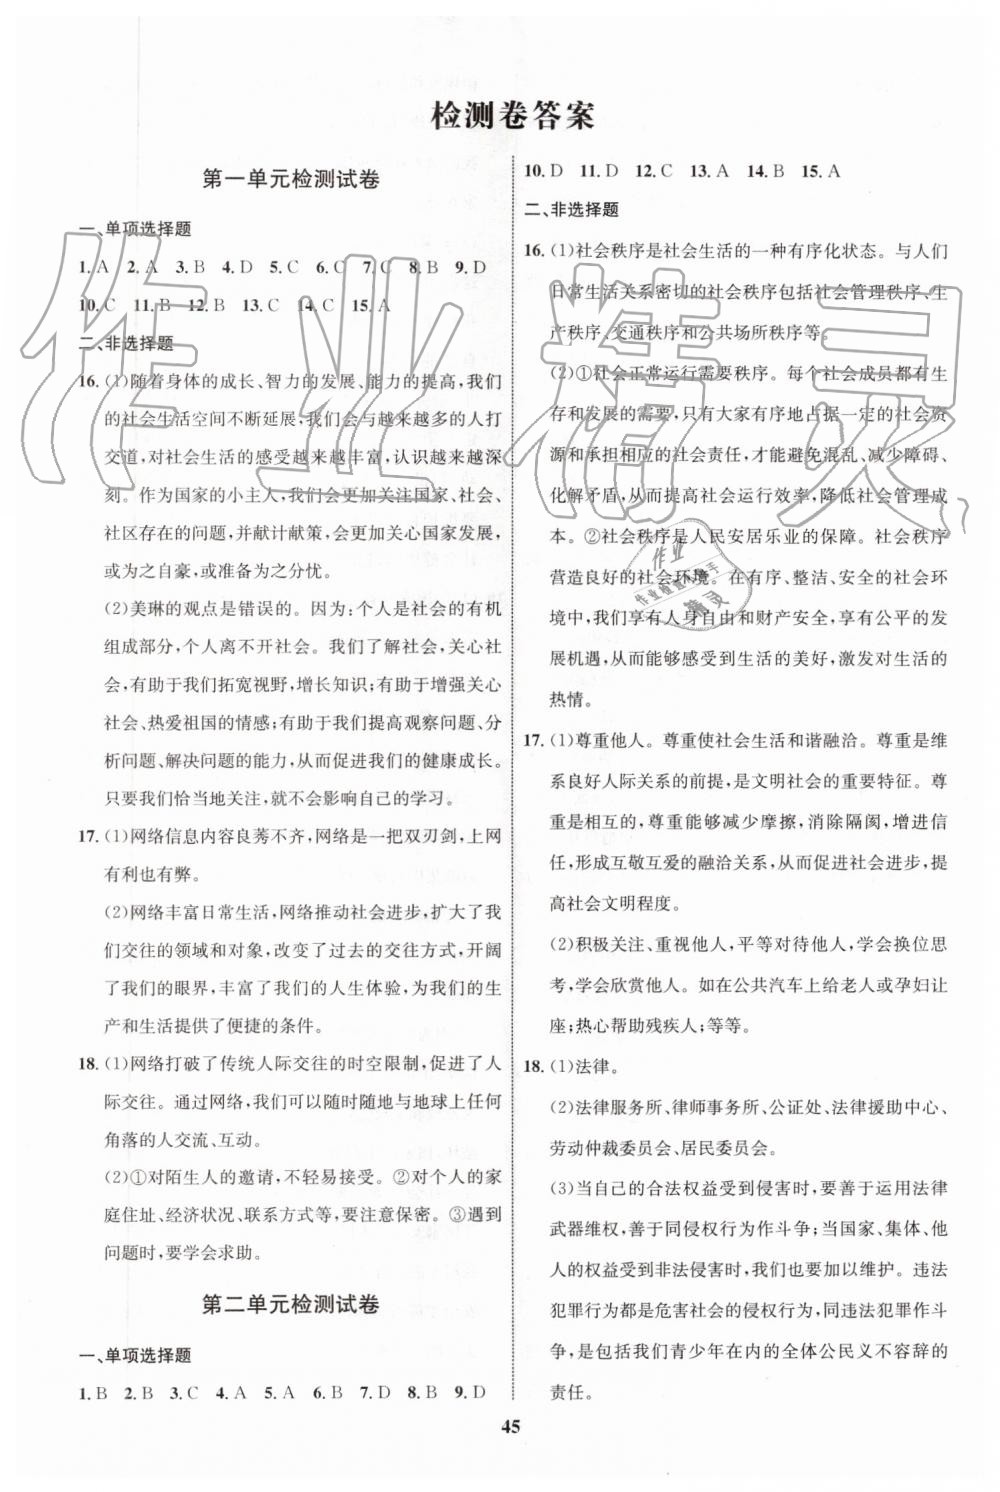 检测卷答案
第一单元检测试卷
一、单项选择题
1. A 2. A 3. B 4. D 5. C 6. C 7. C 8. B 9. D
10. C 11. B 12. B 13. C 14. C 15. A
二、非选择题
16. (1)随着身体的成长、智力的发展、能力的提高,我们
的社会生活空间不断延展,我们会与越来越多的人打
交道,对社会生活的感受越来越丰富,认识越来越深
刻。作为国家的小主人,我们会更加关注国家、社会、
社区存在的问题,并献计献策,会更加关心国家发展,
或为之自豪,或为之分忧。
(2)美琳的观点是错误的。因为:个人是社会的有机
组成部分,个人离不开社会。我们了解社会、关心社
会,有助于我们拓宽视野,增长知识;有助于增强关心
社会、热爱祖国的情感;有助于我们提高观察问题、分
析问题、解决问题的能力,从而促进我们的健康成长。
只要我们恰当地关注,就不会影响自己的学习。
17. (1)网络信息内容良莠不齐,网络是一把双刃剑,上网
有利也有弊。
(2)网络丰富日常生活,网络推动社会进步,扩大了我
们交往的领域和对象,改变了过去的交往方式,开阔
了我们的眼界,丰富了我们的人生体验,为我们的生
产和生活提供了便捷的条件。
18. (1)网络打破了传统人际交往的时空限制,促进了人
际交往。通过网络,我们可以随时随地与地球上任何
角落的人交流、互动。
(2)①对陌生人的邀请,不轻易接受。②对个人的家
庭住址、经济状况、联系方式等,要注意保密。③遇到
问题时,要学会求助。
第二单元检测试卷
一、单项选择题
1. B 2. B 3. C 4. A 5. A 6. B 7. D 8. B 9. D
10. D 11. D 12. C 13. A 14. B 15. A
二、非选择题
16. (1)社会秩序是社会生活的一种有序化状态。与人们
日常生活关系密切的社会秩序包括社会管理秩序、生
产秩序、交通秩序和公共场所秩序等。
(2)①社会正常运行需要秩序。每个社会成员都有生
存和发展的需要,只有大家有序地占据一定的社会资
源和承担相应的社会责任,才能避免混乱、减少障碍、
化解矛盾,从而提高社会运行效率,降低社会管理成
本。②社会秩序是人民安居乐业的保障。社会秩序
营造良好的社会环境。在有序、整洁、安全的社会环
境中,我们享有人身自由和财产安全,享有公平的发
展机遇,从而能够感受到生活的美好,激发对生活的
热情。
17. (1)尊重他人。尊重使社会生活和谐融洽。尊重是维
系良好人际关系的前提,是文明社会的重要特征。尊
重是相互的,尊重能够减少摩擦,消除隔阂,增进信
任,形成互敬互爱的融洽关系,从而促进社会进步,提
高社会文明程度。
(2)积极关注、重视他人,平等对待他人,学会换位思
考,学会欣赏他人。如在公共汽车上给老人或孕妇让
座;热心帮助残疾人;等等。
18. (1)法律。
(2)法律服务所、律师事务所、公证处、法律援助中心、
劳动仲裁委员会、居民委员会。
(3)当自己的合法权益受到侵害时,要善于运用法律
武器维权,善于同侵权行为作斗争;当国家、集体、他
人的权益受到非法侵害时,我们也要加以维护。违法
犯罪行为都是危害社会的侵权行为,同违法犯罪作斗
争,是包括我们青少年在内的全体公民义不容辞的
责任。
45
作业精灵
作业
作业检查小助手
精灵